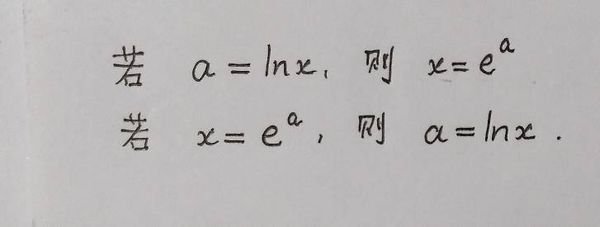 若 a = lnx, 则 x = eᵃ
若 x = eᵃ, 则 a = lnx .